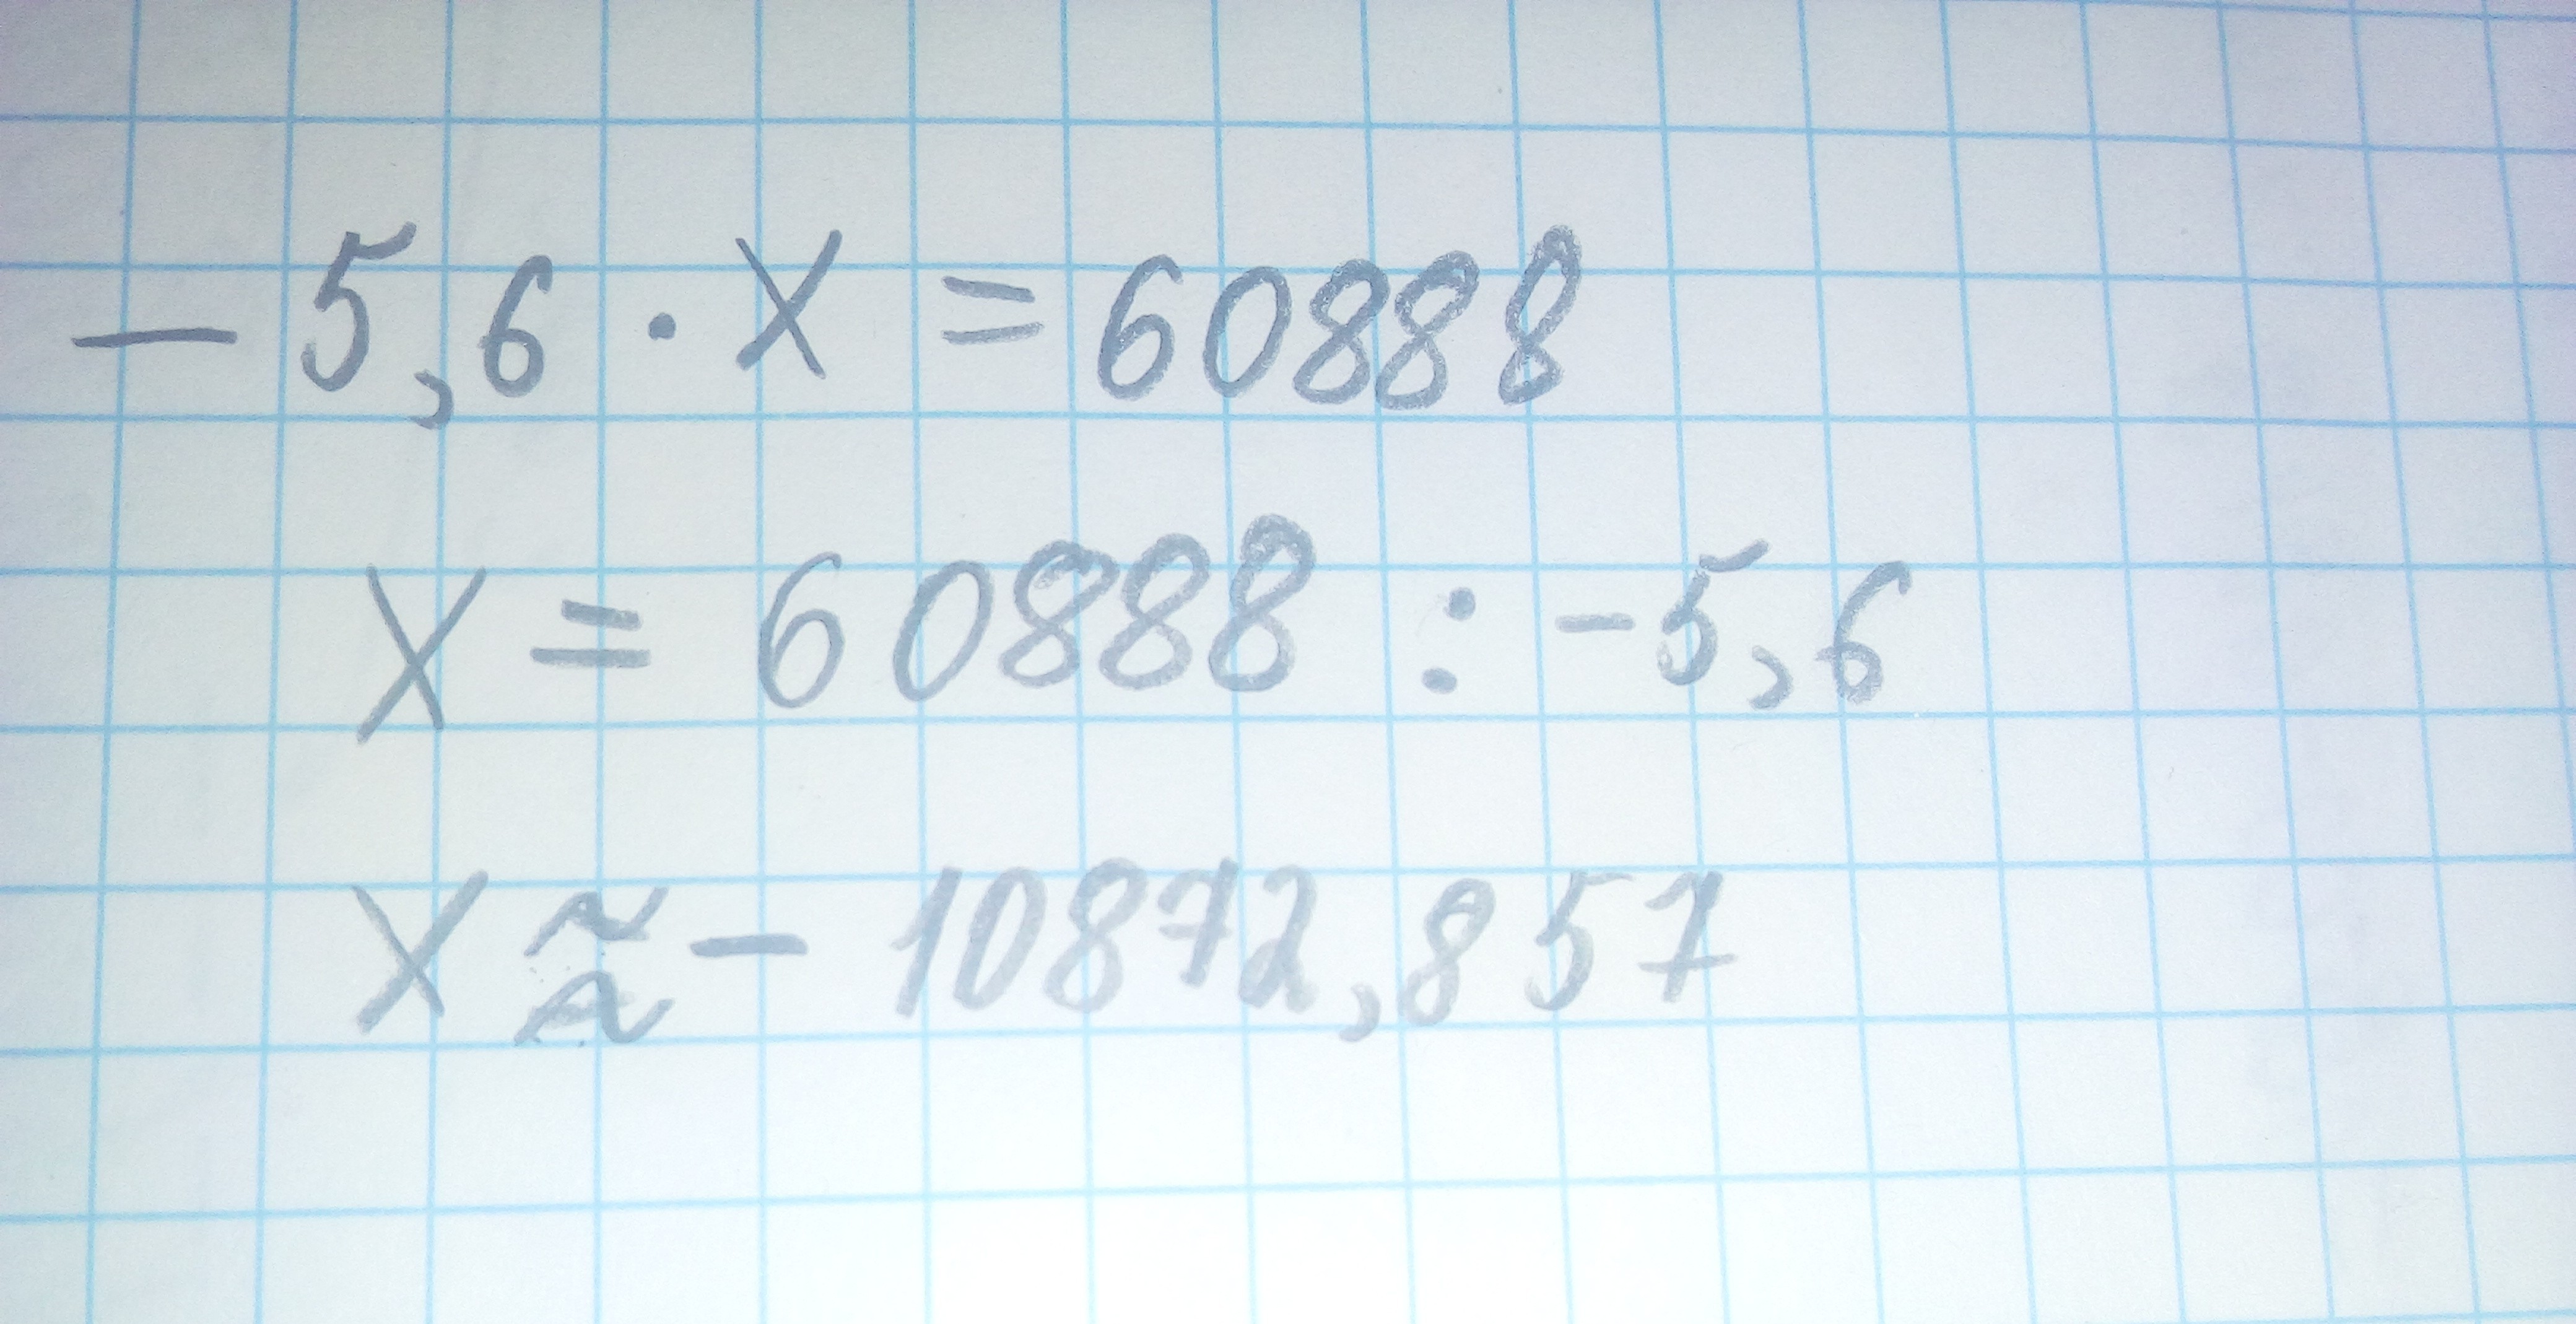 - 5,6 · x = 60888
x = 60888 : -5,6
x ≈ - 10872,857